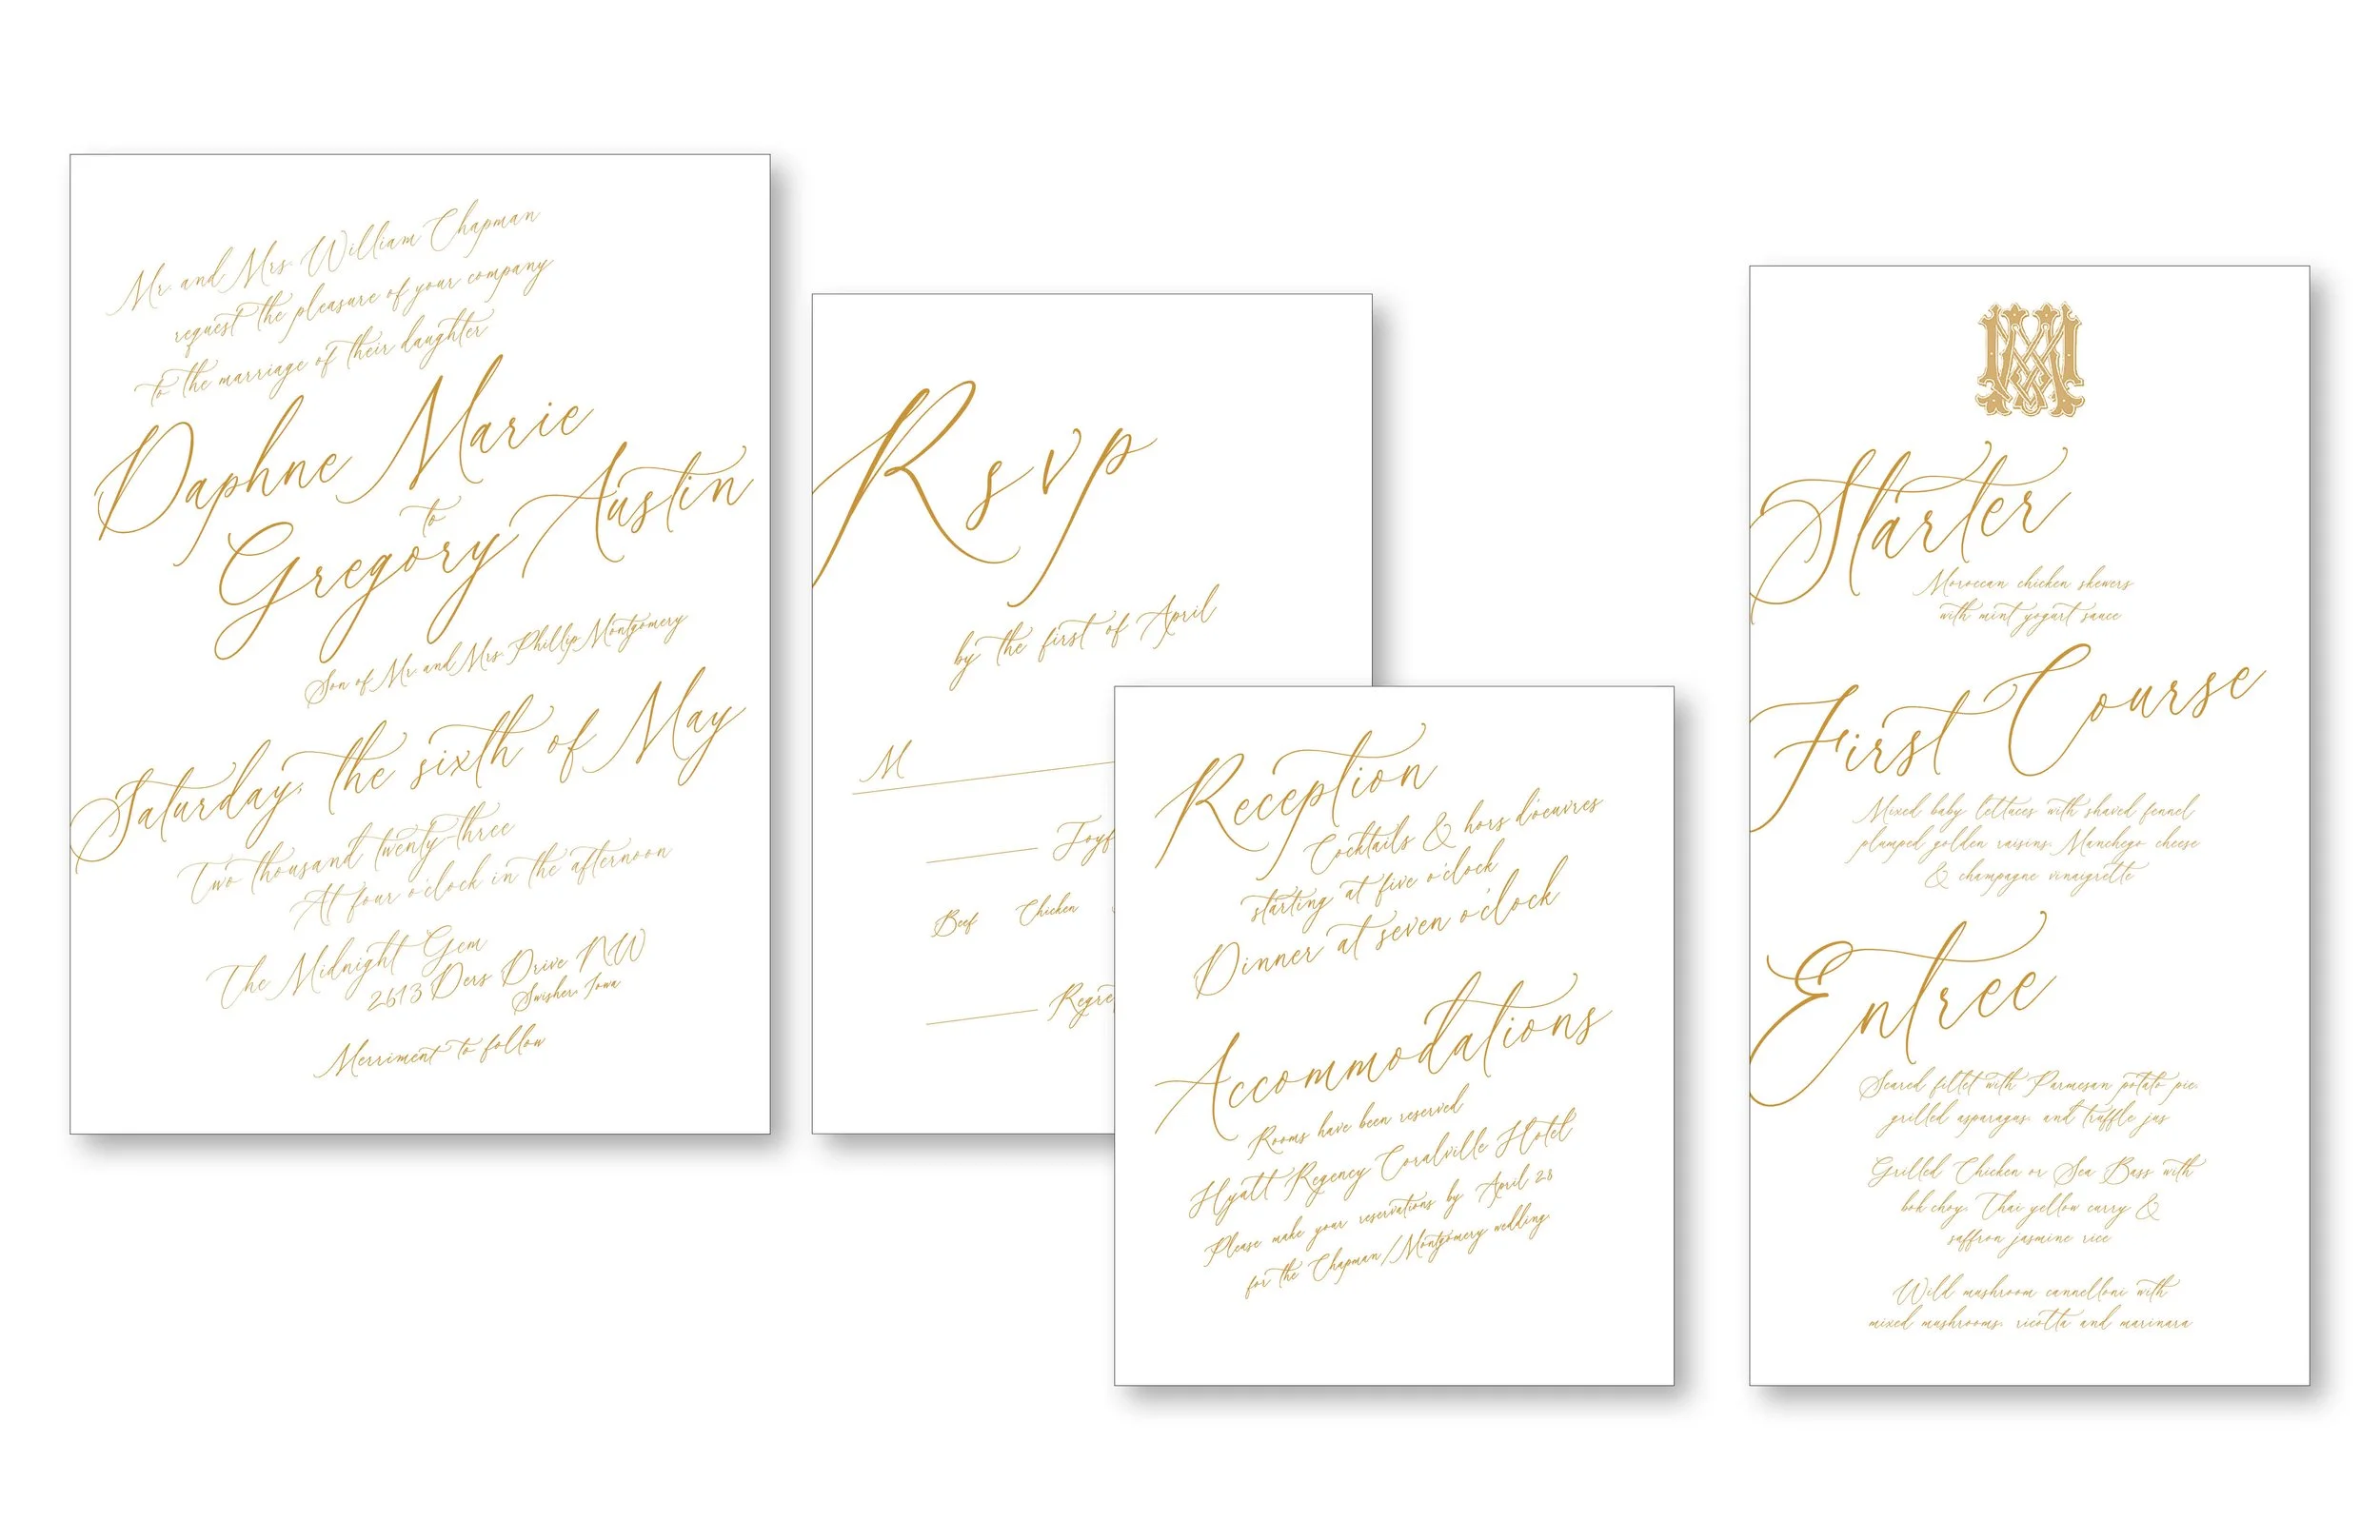 Mr. and Mrs. William Chapman
request the pleasure of your company
to the marriage of their daughter
Daphne Marie
to
Gregory Austin
Son of Mr. and Mrs. Phillip Montgomery
Saturday, the sixth of May
Two thousand twenty-three
At four o'clock in the afternoon
The Midnight Gem
2613 Ders Drive NW
Swisher, Iowa
Merriment to follow
Rsvp
by the first of April
M
Joyf
Beef Chicken
Regre
Reception
Cocktails & hors d'oeuvres
starting at five o'clock
Dinner at seven o'clock
Accommodations
Rooms have been reserved
Hyatt Regency Coralville Hotel
Please make your reservations by April 28
for the Chapman/Montgomery wedding.
Starter
Moroccan chicken skewers
with mint yogart sauce
First Course
Mixed baby lettuces with shaved fennel
plumped golden raisins, Manchego cheese
& champagne vinaigrette
Entree
Seared fillet with Parmesan potato pie,
grilled asparagus, and truffle jus
Grilled Chicken or Sea Bass with
bok choy, Thai yellow curry &
saffron jasmine rice
Wild mushroom cannelloni with
mixed mushrooms, ricotta and marinara